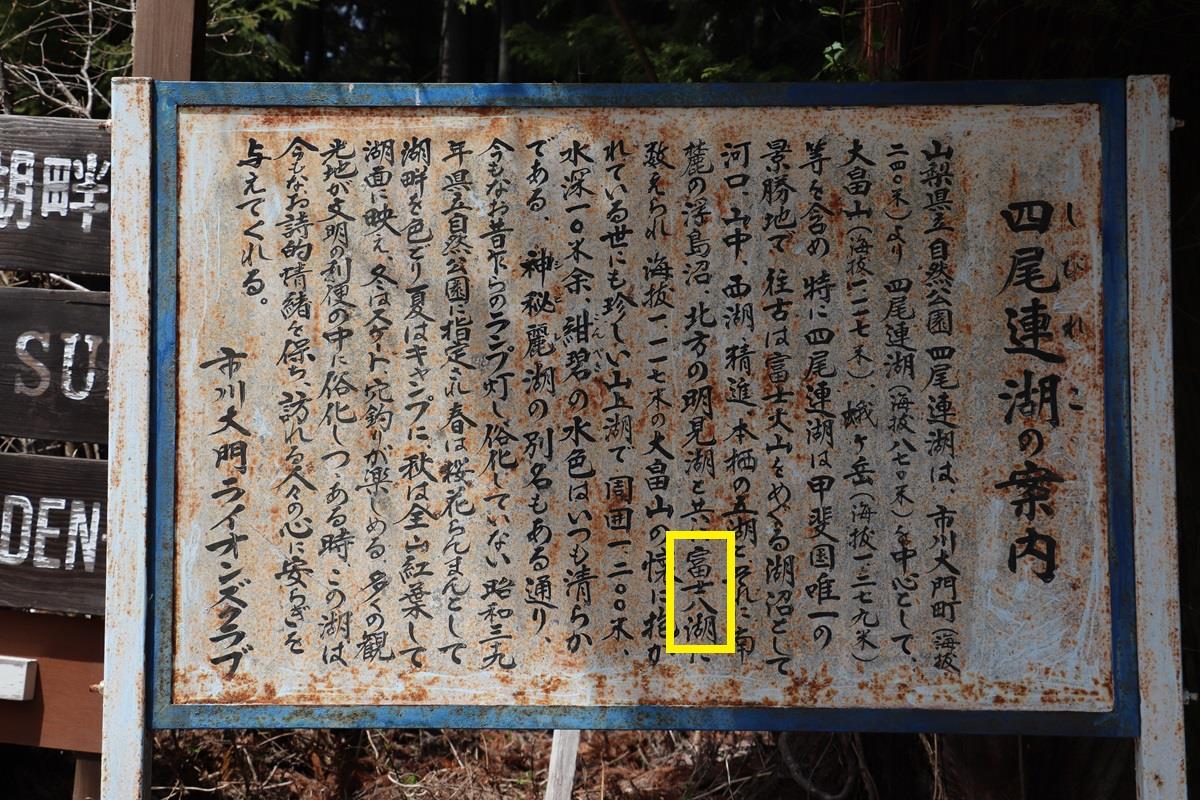 四尾連湖の案内
しびれこ
山梨県立自然公園 四尾連湖は、市川大門町(海抜
二四〇米)より 四尾連湖(海抜八七〇米)を中心として、
大畠山(海抜一一一七米)、蛾ケ岳(海抜一二七九米)
等を含め 特に四尾連湖は甲斐国唯一の
景勝地で 往古は富士火山をめぐる湖沼として
河口、山中、西湖、精進、本栖の五湖とそれに南
麓の浮島沼 北方の明見湖と共に富士八湖に
数えられ 海抜一、一一七米の大畠山の懐に抱か
れている世にも珍しい山上湖で 周囲一、二〇〇米、
水深一〇米余、紺碧の水色はいつも清らか
こんぺき
である、神秘麗湖の別名もある通り、
しびれこ
今もなお昔ながらのランプ灯し、俗化していない 昭和三九
年 県立自然公園に指定され 春は桜花らんまんとして
湖畔を色どり 夏はキャンプに 秋は全山紅葉して
湖面に映え、冬はスケート 穴釣りが楽しめる、多くの観
光地が文明の利便の中に俗化しつゝある時、この湖は
今もなお詩的情緒を保ち、訪れる人々の心に安らぎを
与えてくれる。
市川大門ライオンズクラブ
湖畔
SU
DEN